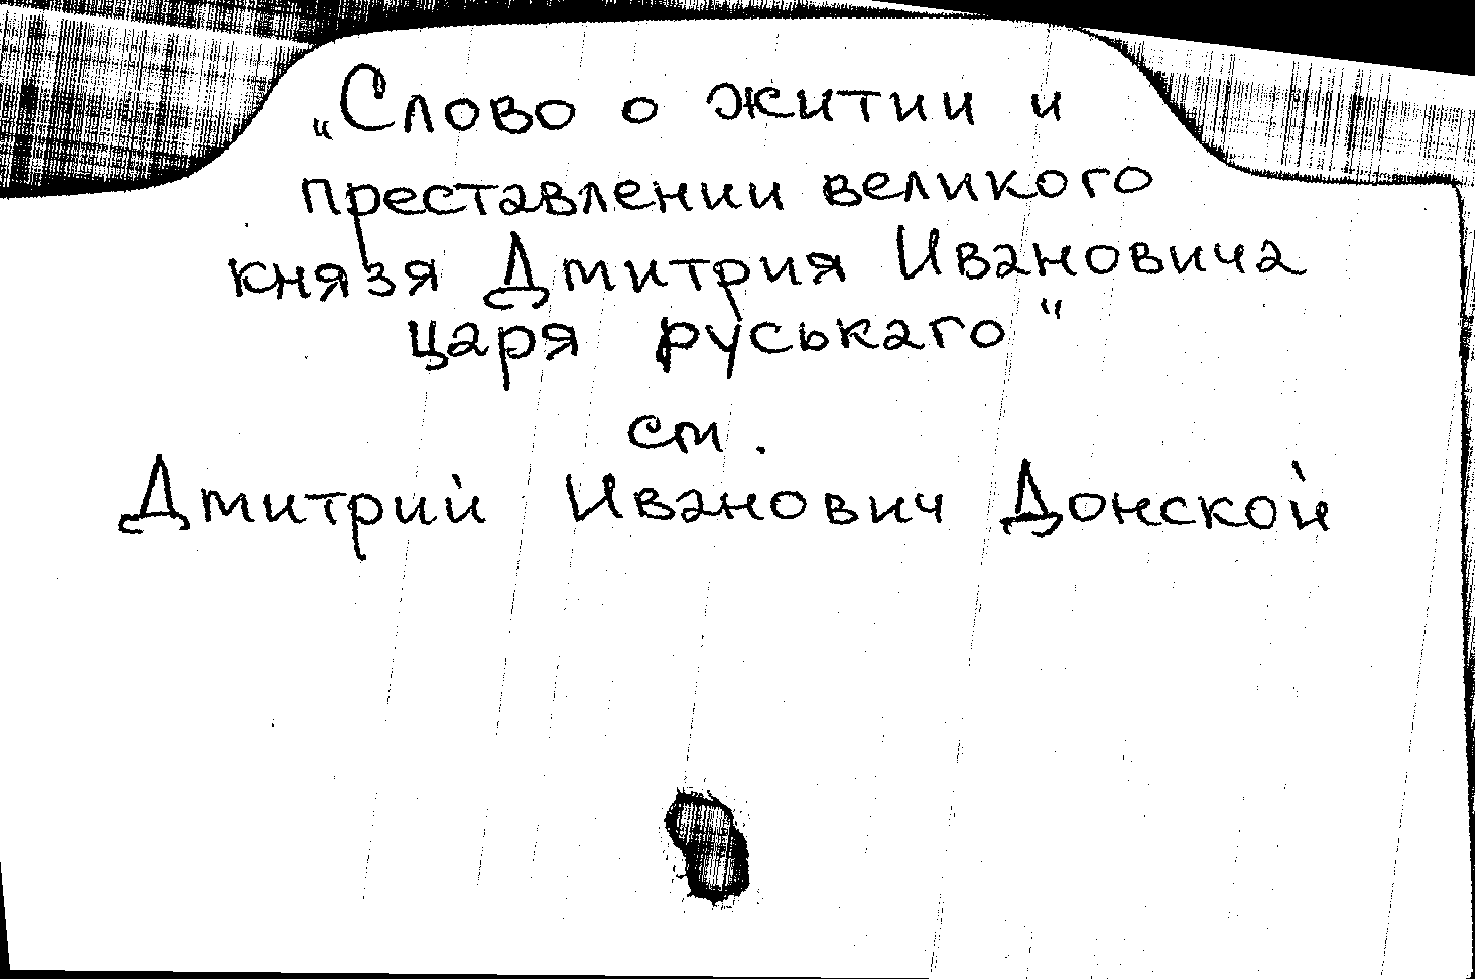 „Слово о житии и
преставлении великого
князя Дмитрия Ивановича
царя руськаго"
см.
Дмитрий Иванович Донской